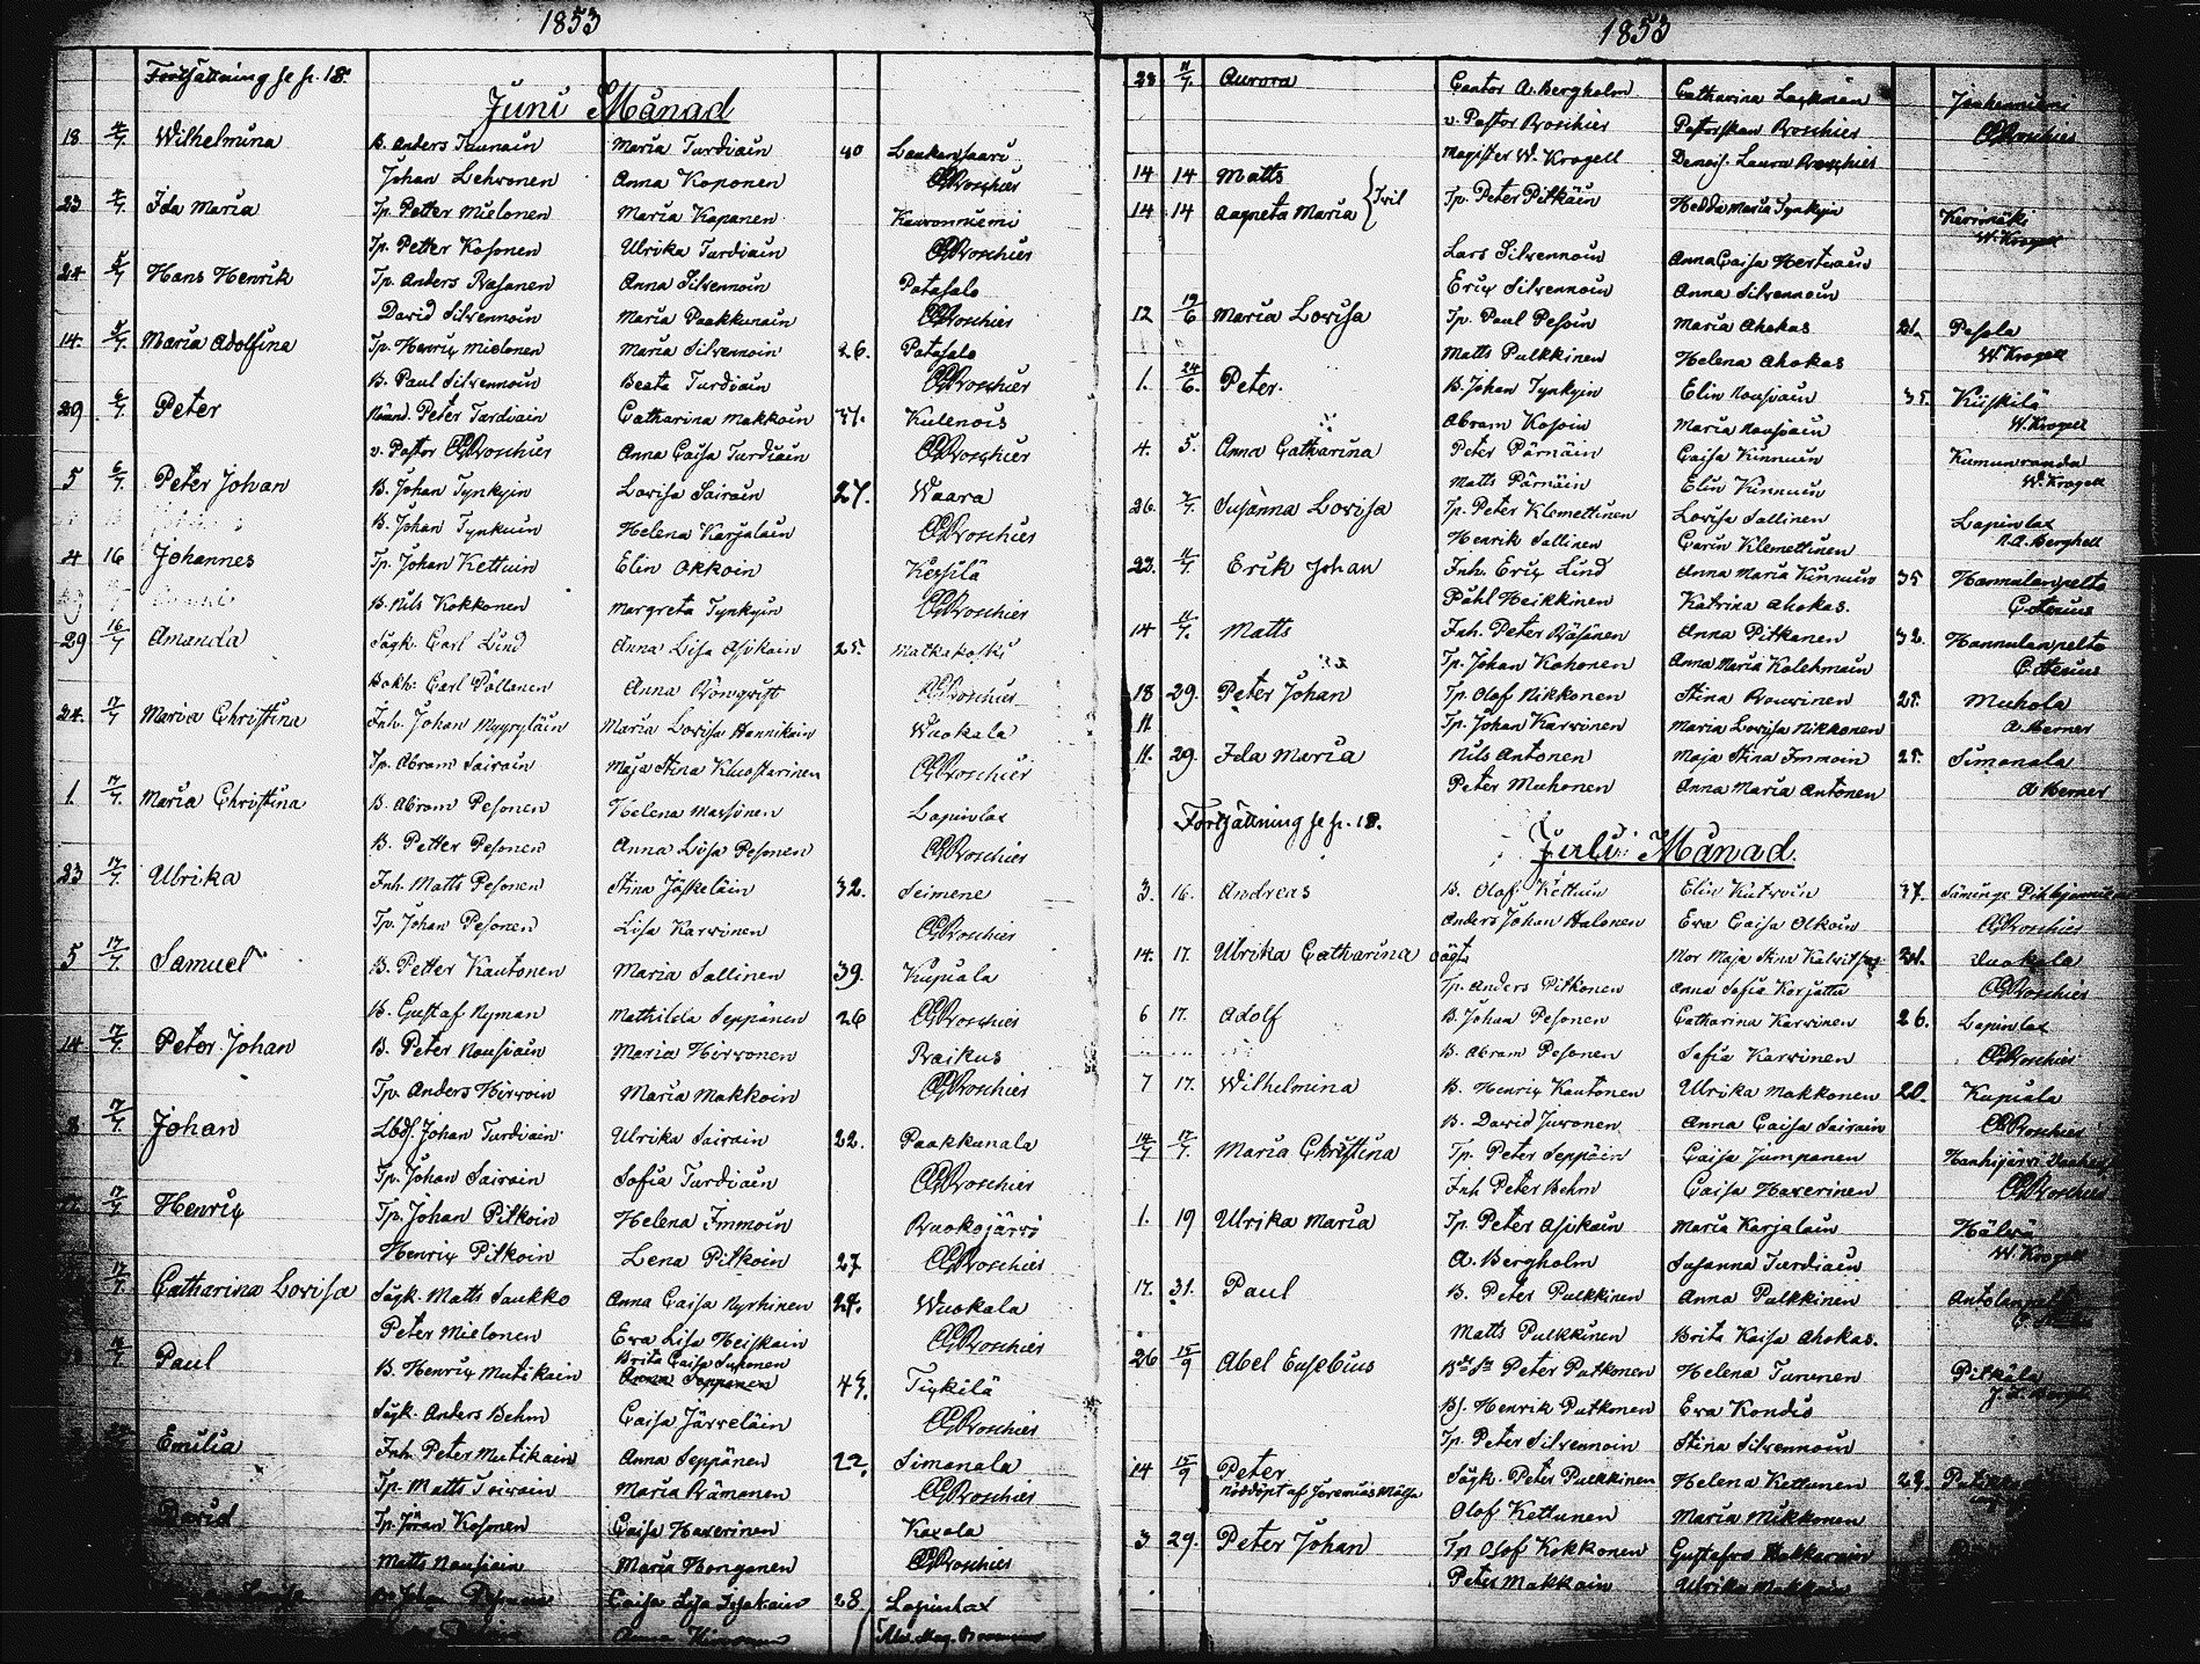 1853
Fortsättning se p. 18.
Juni Månad
18 4/7. Wilhelmina B. Anders Maria Turdiain 40 Laukansaari
Johan Lehvonen Anna Koponen CGRoschier
23 4/7. Ida Maria Tp. Petter Mielonen Maria Kapanen Kauvonniemi
Tp. Petter Kosonen Ulrika Turdiain CGRoschier
24 5/7 Hans Henrik Tp. Anders Räsanen Anna Silvennoin Patasalo
David Silvennoin Maria Paakkunain CGRoschier
14. 5/7. Maria Adolfina Tp. Henrix Mielonen Maria Silvennoin 26. Patasalo
B. Paul Silvennoin Beata Turdiain CGRoschier
29 6/7. Peter Nämd. Peter Turdiain Catharina Makkoin 37. Kulenois
v. Pastor CGRoschier Anna Caisa Turdiain CGRoschier
5 6/7. Peter Johan B. Johan Tynkyin Lovisa Sairain 27. Waara
B. Johan Tynkuin Helena Karjalain CGRoschier
4 16 Johannes Tp. Johan Kettuin Elin Okkoin Kessilä
B. Nils Kokkonen Margreta Tynkyin CGRoschier
29 16/7 Amanda Sägk. Carl Lind Anna Lisa Asikain 25. Matkakoski
Bokh. Carl Pöllanen Anna Rönnqvist CGRoschier
24. 17/7 Maria Christina Inh. Johan Myyryläin Maria Lovisa Hannikain Wuokala
Tp. Abram Sairain Maja Stina Kluostarinen CGRoschier
1. 17/7. Maria Christina B. Abram Pesonen Helena Massinen Lapinlax
B. Petter Pesonen Anna Lisa Pesonen CGRoschier
23 17/7. Ulrika Inh. Matts Pesonen Stina Jäskeläin 32. Seimene
Tp. Johan Pesonen Lisa Karvinen CGRoschier
5 17/7. Samuel B. Petter Kautonen Maria Sallinen 39. Kupiala
B. Gustaf Nyman Mathilda Seppänen 26 CGRoschier
14. 17/7. Peter Johan B. Peter Nousiain Maria Hirvonen Raikus
Tp. Anders Hirvoin Maria Makkoin CGRoschier
8 17/7. Johan Lbdf. Johan Turdiain Ulrika Sairain 22. Paakkunala
Tp. Johan Sairain Sofia Turdiain CGRoschier
17/7 Henrix Tp. Johan Pitkoin Helena Immoin Ruokojärvi
Henrix Pitkoin Lena Pitkoin 27 CGRoschier
17/7. Catharina Lovisa Sägk. Matts Saukko Anna Caisa Nyrhinen 24. Wuokala
Peter Mielonen Eva Lisa Heiskain CGRoschier
Paul B. Henrix Mutikain Brita Caisa Suhonen
Anna Seppänen 43. Tiykilä
Sägk. Anders Behm Caisa Järveläin CGRoschier
Emilia Inh. Peter Mutikain Anna Seppänen 22. Simanala
Tp. Matts Toivain Maria Rämänen CGRoschier
David Tp. Jöran Kosonen Caisa Haverinen Kaxala
Matts Nousiain Maria Honganen CGRoschier
Caisa Lisa 28 Lapinlax
Anna
1853
23 11/7. Aurora Cantor A. Bergholm Catharina Lackman
v. Pastor Roschier Pastorskan Roschier CGRoschier
Magister W. Krogell Demois. Laura Roschier
14 14 Matts } Tvil Tp. Peter Pitkäin Hedda Maria Tynkyin Kerimäki
14 14 Aagneta Maria W. Krogell
Lars Silvennoin Anna Caisa
Erix Silvennoin Anna Silvennoin
12 19/6 Maria Lovisa Tp. Paul Pesoin Maria Ahokas 21. Pesola
Matts Pulkkinen Helena Ahokas W. Krogell
1. 24/6. Peter. B. Johan Tynkyin Elin Nousiain 35. Kiiskilä
Abram Kosoin Maria Nousiain W. Krogell
4. 5. Anna Catharina Peter Pärnäin Caisa Kinnuin Kumunranda
Matts Pärnäin Elin Kinnuin W. Krogell
26. 7/7. Susanna Lovisa Tp. Peter Klemettinen Lovisa Sallinen Lapinlax
Henrik Sallinen Carin Klemettinen N. A. Berghell
22. 11/7. Erik Johan Inh. Erix Lind Anna Maria Kinnuin 35 Hannulanpelto
Påhl Heikkinen Katrina Ahokas.
14 11/7. Matts Inh. Peter Räsänen Anna Pitkanen 32. Hannulanpelto
Tp. Johan Kohonen Anna Maria Kolehmain
18 29. Peter Johan Tp. Olof Nikkonen Stina Rouvinen 25. Muhola
11. Tp. Johan Karvinen Maria Lovisa Nikkonen A. Berner
11. 29. Ida Maria Nils Antonen Maja Stina Immoin 25. Simanala
Peter Muhonen Anna Maria Antonen A Berner
Fortsättning se p. 18.
Juli Månad.
3. 16. Andreas B. Olof Kettuin Elin Kutvoin 37. Säminge
Anders Johan Halonen Eva Caisa Olkoin CGRoschier
14. 17. Ulrika Catharina oägt. Mor Maja Stina 24. Wuokala
Tp. Anders Pitkonen Anna Sofia Korjattu CGRoschier
6 17. Adolf B. Johan Pesonen Catharina Karvinen 26. Lapinlax
B. Abram Pesonen Sofia Karvinen CGRoschier
7 17. Wilhelmina B. Henrix Kautonen Ulrika Makkonen 20. Kupiala
B. David Juvonen Anna Caisa Sairain CGRoschier
14/7 17/7. Maria Christina Tp. Peter Seppäin Caisa Jumpanen Hanhijärvi
Inh Peter Behm Caisa Haverinen CGRoschier
1. 19 Ulrika Maria Tp. Peter Asikain Maria Karjalain Hälvä
A. Bergholm Susanna Turdiain W. Krogell
17. 31. Paul B. Peter Pulkkinen Anna Pulkkinen
Matts Pulkkinen Brita Kaisa Ahokas.
26 15/9 Abel Eusebius Peter Putkonen Helena Turunen Pitkälä
Bs. Henrik Putkonen Eva Kondio
Tp. Peter Silvennoin Stina Silvennoin
14 15/9 Peter Sägk. Peter Pulkkinen Helena Kettunen 29.
nöddöpt af Jeremias Olof Kettunen Maria Mikkonen
3 29. Peter Johan Tp Olof Kokkonen Gustafva
Peter Makkain Ulrika Makkain